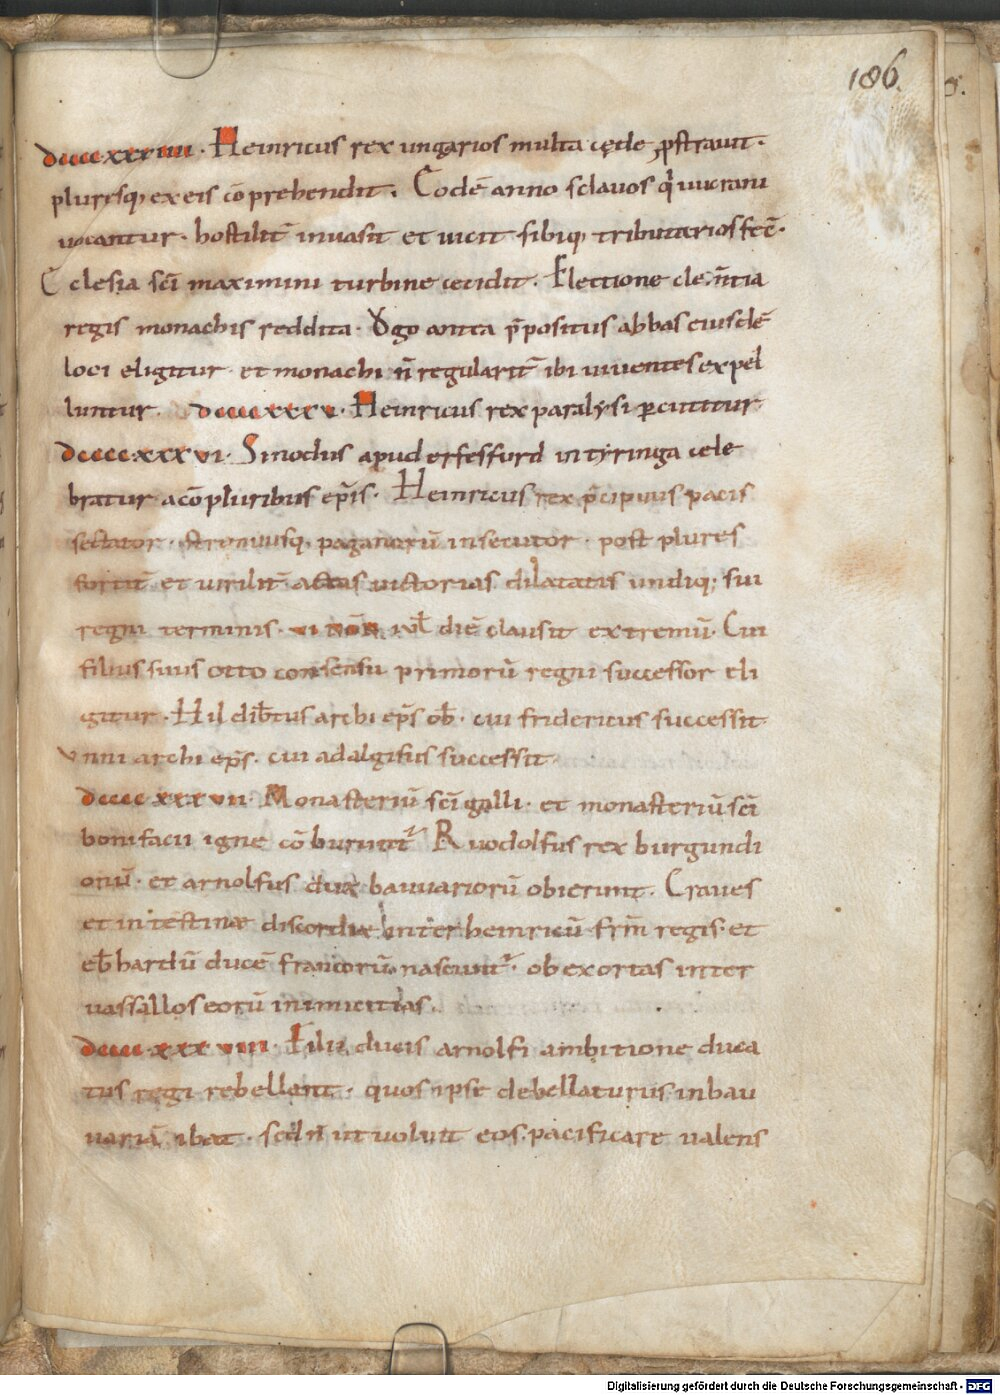 186.
dcccc.xxx.iiii. Heinricus rex ungarios multa cęde ꝓstrauit.
pluresq; ex eis cō prehendit. Eodē anno sclauos q̇ uucrani
uocantur. hostilit̄ inuasit et uicit sibiq; tributarios fec̄.
Ecclesia sc̄i maximini turbine cecidit. Electione clem̄tia
regis monachis reddita. Ogo antea p̄positus abbas eiusdē
loci eligitur et monachi n̄ regularit̄ ibi uiuentes expel
luntur. dcccc.xxx.v. Heinricus rex paralysi ꝑcutitur
dcccc.xxx.vi. Sinodus apud erfesfurd in tyringa cele
bratur a cō pluribus ep̄is. Heinricus rex p̄cipuus pacis
sectator. strenuusq; paganorū insecutor. post plures
fortit̄ et uirilit̄ actas uictorias dilatatis undiq; sui
regni terminis. vi non. iul̄ diē clausit extremū. Cui
filius suus otto consensu primorū regni successor eli
gitur. Hildib̄tus archi ep̄s ob̄. cui fridericus successit
vnni archi ep̄s. cui adalgisus successit
dcccc.xxx.vii. Monasteriū sc̄i galli. et monasteriū sc̄i
bonifacii igne cō burunt᷑ Ruodolfus rex burgundi
onū. et arnolfus dux bauuariorū obierunt. Graues
et intestinæ discordiæ inter heinricū frm̄ regis. et
eb̄hardū ducē francorū nascunt᷑. ob exortas inter
uassallos eorū inimicitias.
dcccc.xxx.viii. Filii ducis arnolfi ambitione duca
tus regi rebellant. quos ipse debellaturus in bau
uariā ibat. sed n̄ ut uoluit eos pacificare ualens
Digitalisierung gefördert durch die Deutsche Forschungsgemeinschaft - DFG